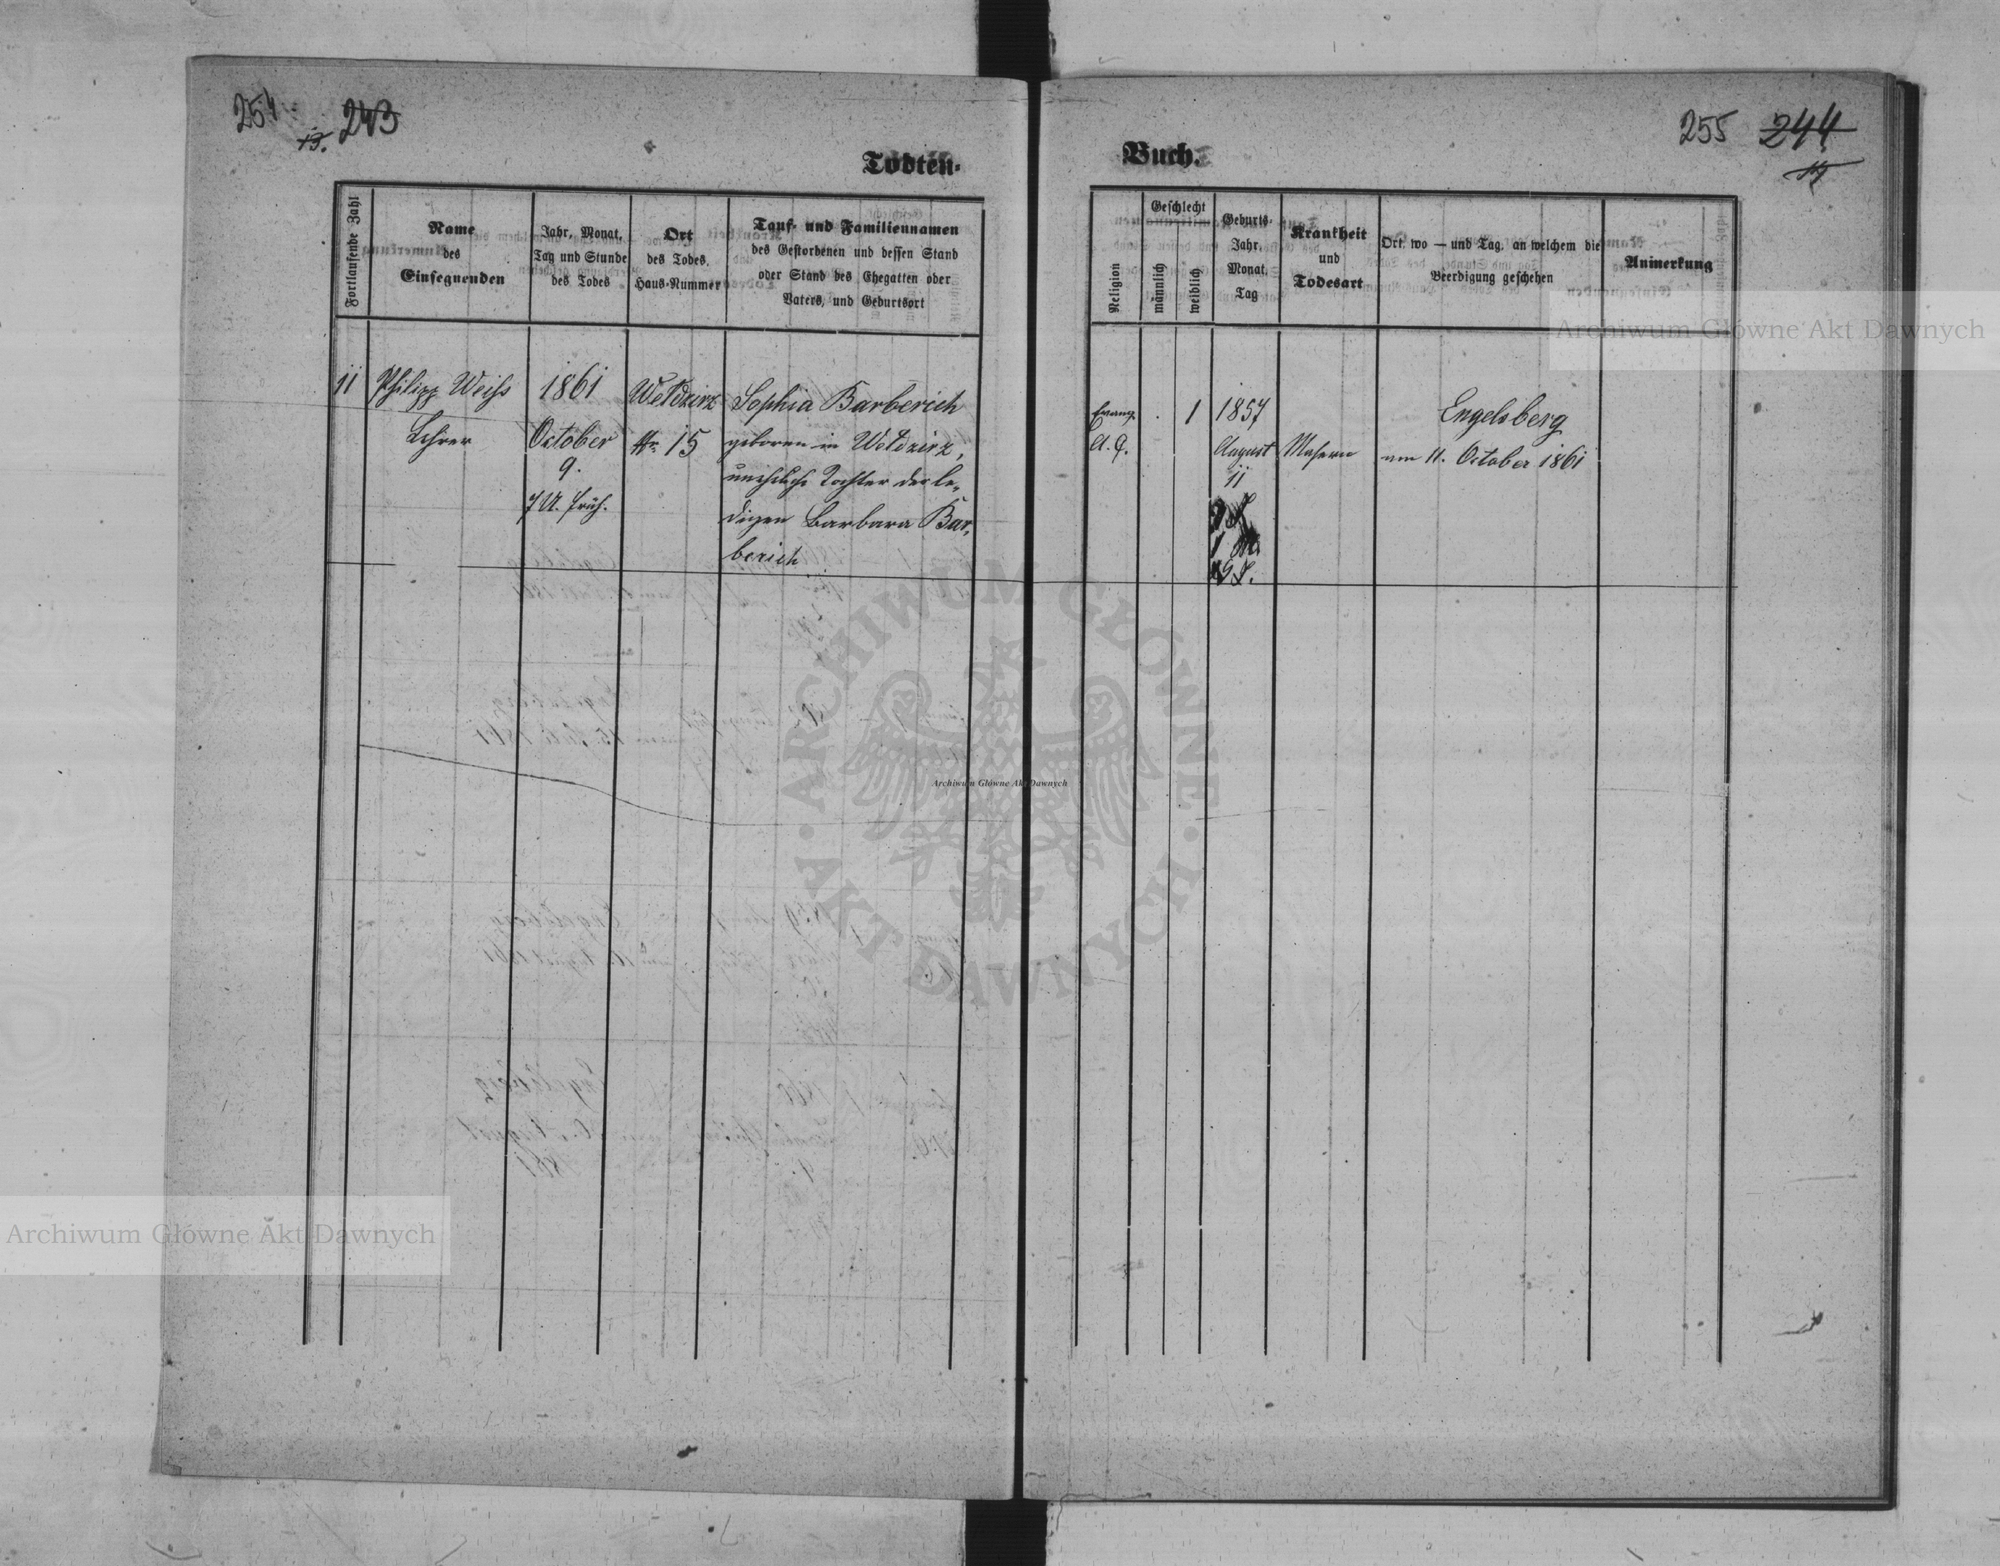 254 243
13.
255 244
14
Todten-
Buch.
Fortlaufende Zahl
Name
des
Einsegnenden
Jahr, Monat,
Tag und Stunde
des Todes
Ort
des Todes.
Haus-Nummer
Tauf- und Familiennamen
des Gestorbenen und dessen Stand
oder Stand des Ehegatten oder
Vaters, und Geburtsort
Religion
Geschlecht
männlich
weiblich
Geburts-
Jahr,
Monat,
Tag
Krankheit
und
Todesart
Ort, wo — und Tag, an welchem die
Beerdigung geschehen
Anmerkung
11
Philipp Weiss
Lehrer
1861
October
9.
7 U. früh.
Wełdzirz
Nr. 15
Sophia Barberich
geboren in Wełdzirz,
uneheliche Tochter der le-
digen Barbara Bar-
berich
Evang.
A. C.
1
1857
August
11
Masern
Engelsberg
am 11. October 1861
Archiwum Główne Akt Dawnych
Archiwum Główne Akt Dawnych
Archiwum Główne Akt Dawnych
ARCHIWUM GŁÓWNE · AKT DAWNYCH ·